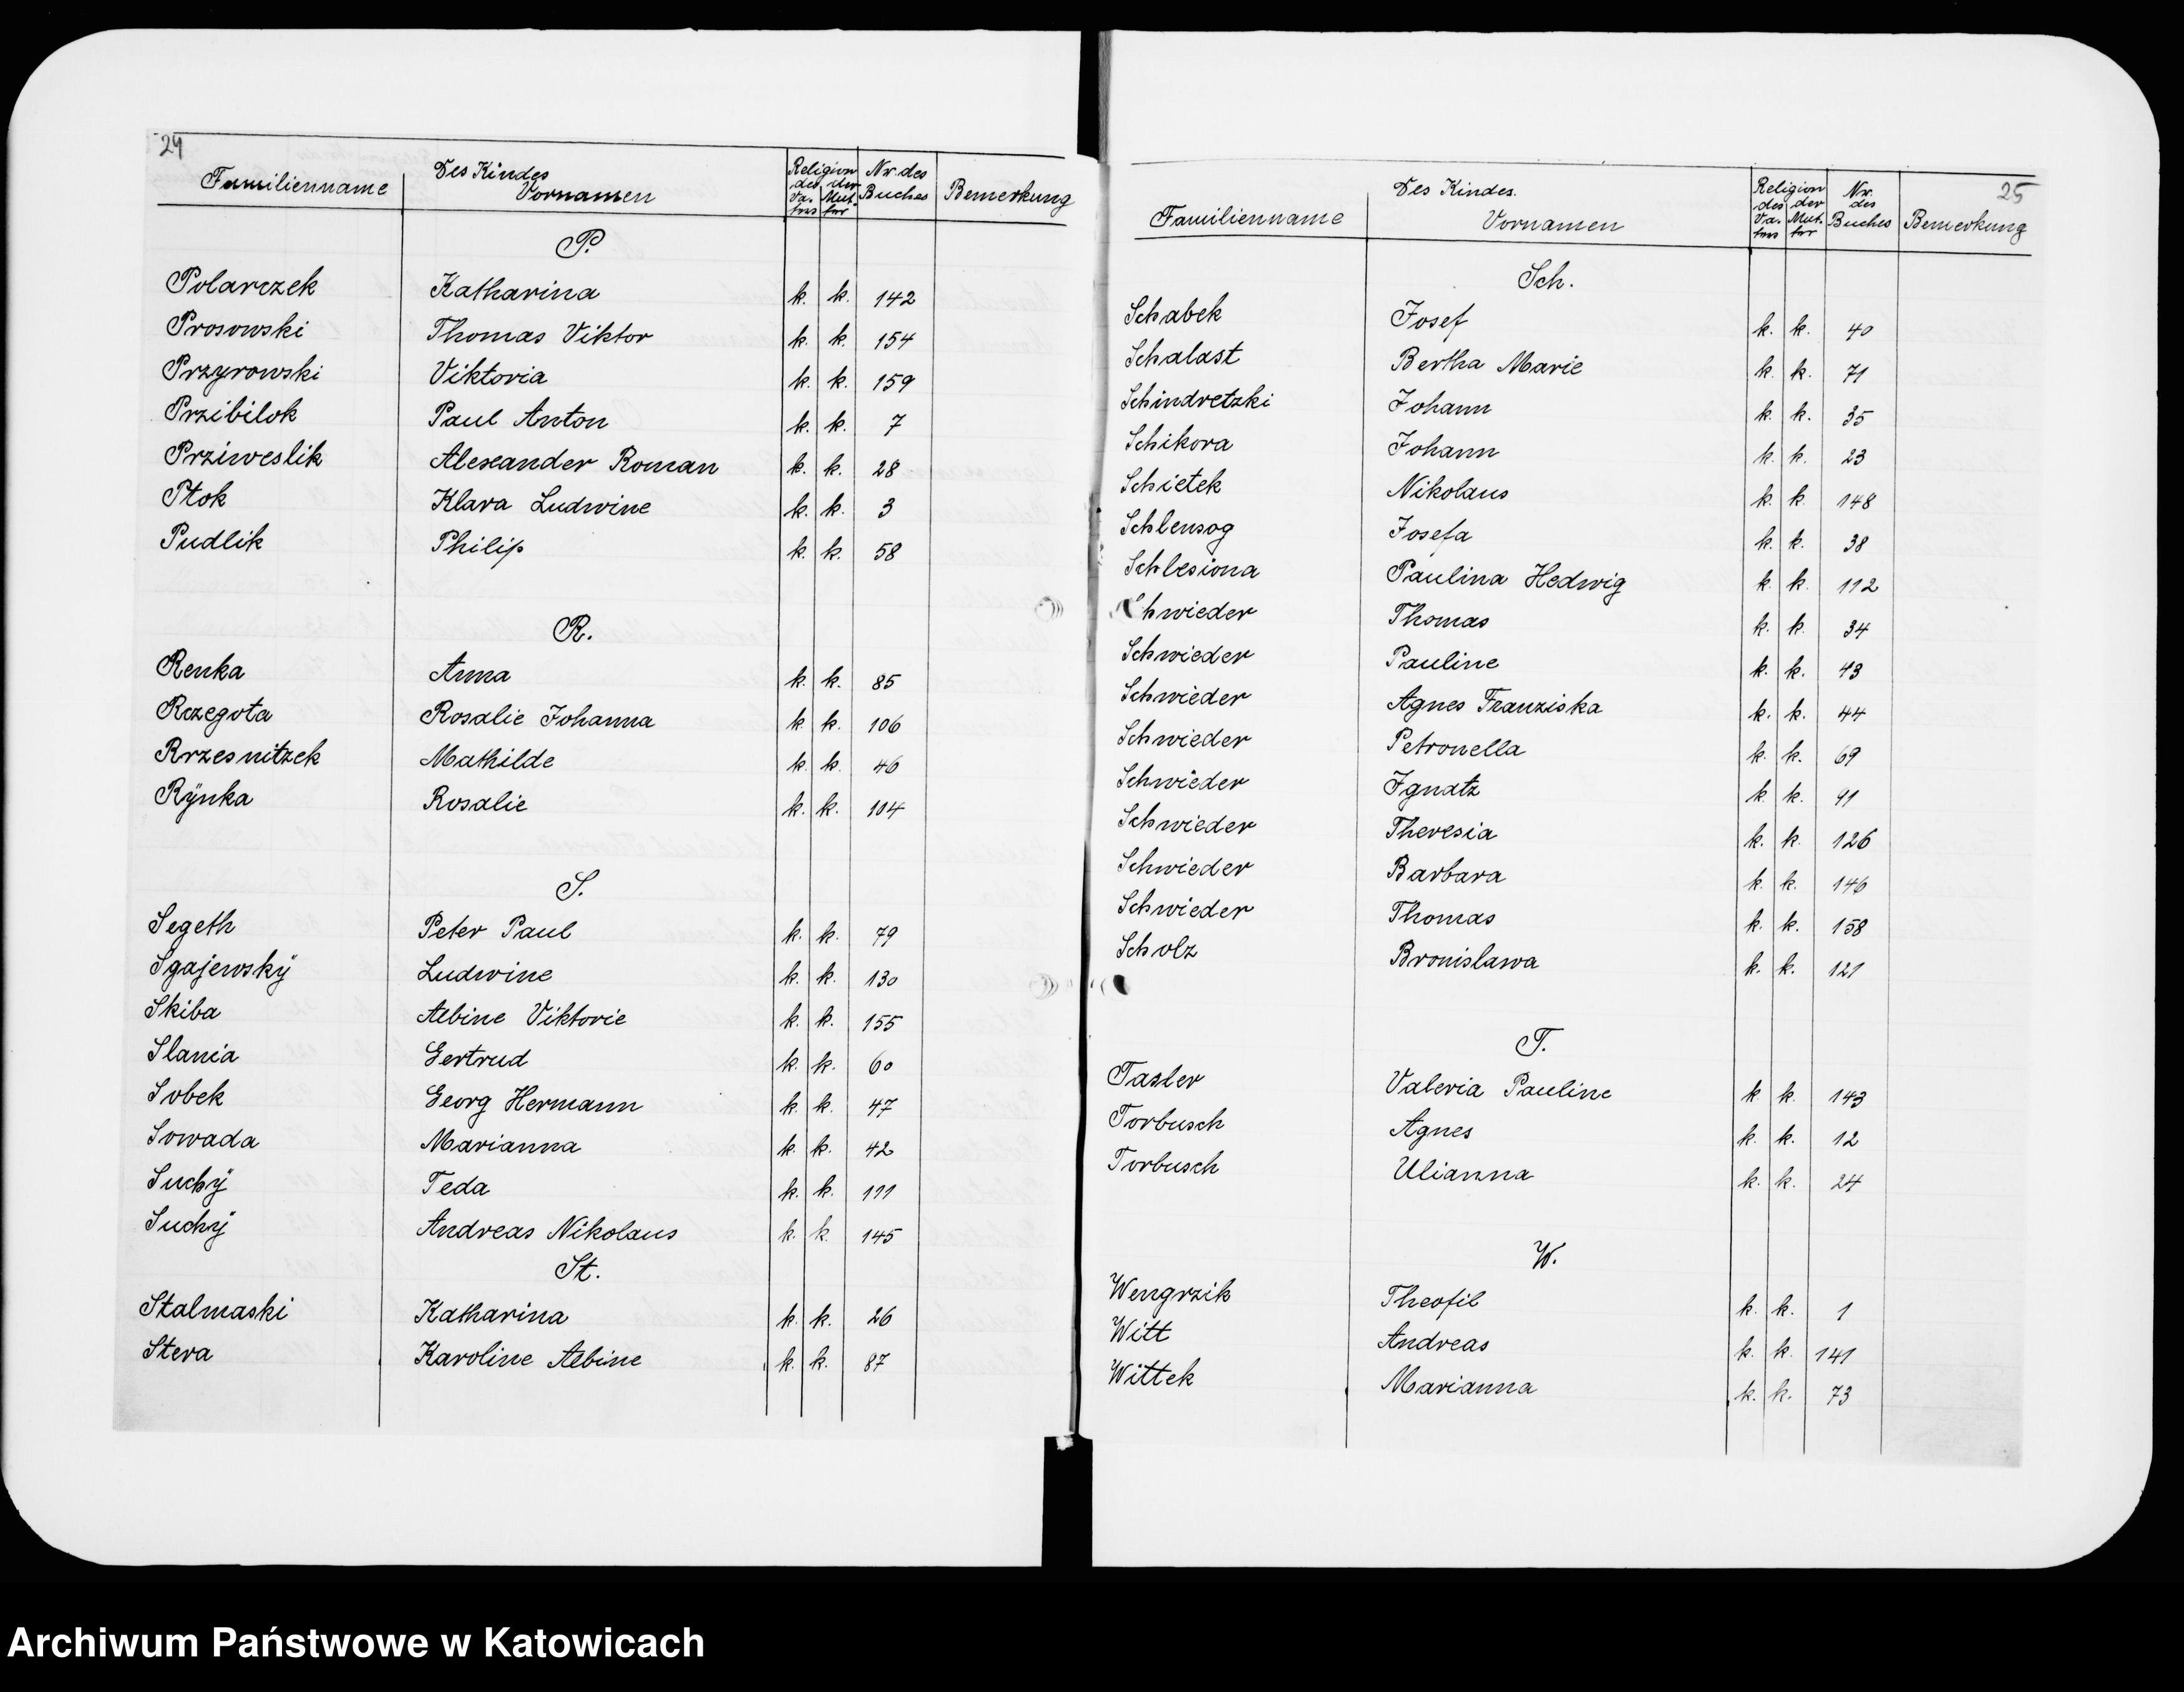 24
Familienname Des Kindes Vornamen Religion des Vaters der Mutter Nr. des Buches Bemerkung
P.
Polarczek Katharina k. k. 142
Prosowski Thomas Viktor k. k. 154
Przyrowski Viktoria k. k. 159
Przibilok Paul Anton k. k. 7
Prziweslik Alexander Roman k. k. 28
Ptok Klara Ludwine k. k. 3
Pudlik Philip k. k. 58
R.
Renka Anna k. k. 85
Rzegota Rosalie Johanna k k. 106
Rrzesnitzek Mathilde k. k. 46
Rÿnka Rosalie k. k. 104
S.
Segeth Peter Paul k. k. 79
Sgajewskÿ Ludwine k. k. 130
Skiba Albine Viktorie k. k. 155
Slania Gertrud k. k. 60
Sobek Georg Hermann k. k. 47
Sowada Marianna k. k. 42
Suchÿ Teda k. k. 111
Suchÿ Andreas Nikolaus k. k. 145
St.
Stalmaski Katharina k. k. 26
Stera Karoline Albine k. k. 87
25
Familienname Des Kindes. Vornamen Religion des Vaters der Mutter Nr. des Buches Bemerkung
Sch.
Schabek Josef k. k. 40
Schalast Bertha Marie k. k. 71
Schindretzki Johann k. k. 35
Schikora Johann k. k. 23
Schietek Nikolaus k. k 148
Schlensog Josefa k. k. 38
Schlesiona Paulina Hedwig k. k. 112
Schwieder Thomas k. k. 34
Schwieder Pauline k. k. 43
Schwieder Agnes Franziska k. k. 44
Schwieder Petronella k. k. 69
Schwieder Ignatz k. k. 91
Schwieder Theresia k. k. 126
Schwieder Barbara k. k. 146
Schwieder Thomas k. k. 158
Scholz Bronislawa k. k. 121
T.
Tasler Valeria Pauline k k. 143
Torbusch Agnes k. k. 12
Torbusch Ulianna k. k. 24
W.
Wengrzik Theofil k. k. 1
Witt Andreas k. k. 141
Wittek Marianna k. k. 73
Archiwum Państwowe w Katowicach